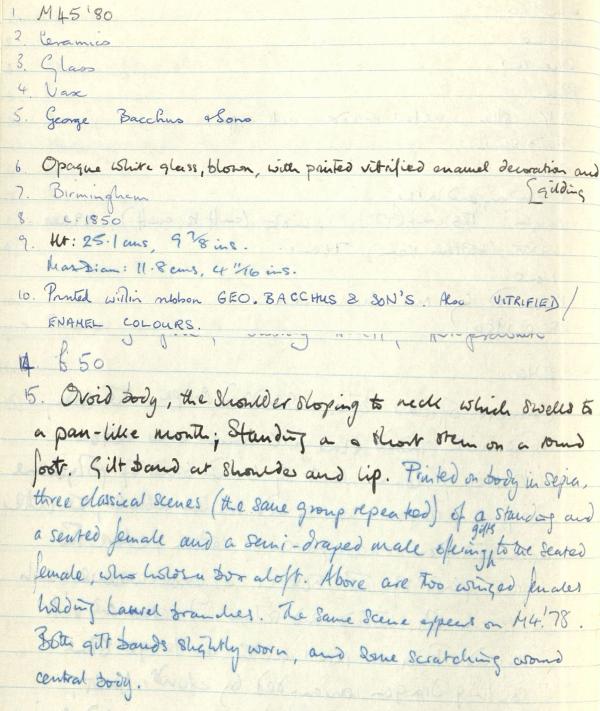 1. M45 '80
2. Ceramics
3. Glass
4. Vase
5. George Bacchus & Sons
6 Opaque white glass, blown, with printed vitrified enamel decoration and
[gilding
7. Birmingham
8 c. 1850
9. Ht: 25.1 cms, 9 7/8 ins.
Max Diam: 11.8 cms, 4 11/16 ins.
10. Printed within ribbon GEO. BACCHUS & SON'S. Also VITRIFIED /
ENAMEL COLOURS.
14 £50
15. Ovoid body, the shoulder sloping to neck which swells to
a pan-like mouth; Standing on a short stem on a round
foot. Gilt band at shoulder and lip. Printed on body in sepia,
three classical scenes (the same group repeated) of a standing and
a seated female and a semi-draped male offering gifts to the seated
female, who holds a box aloft. Above are two winged females
holding laurel branches. The same scene appears on M4.'78.
Both gilt bands slightly worn, and some scratching around
central body.